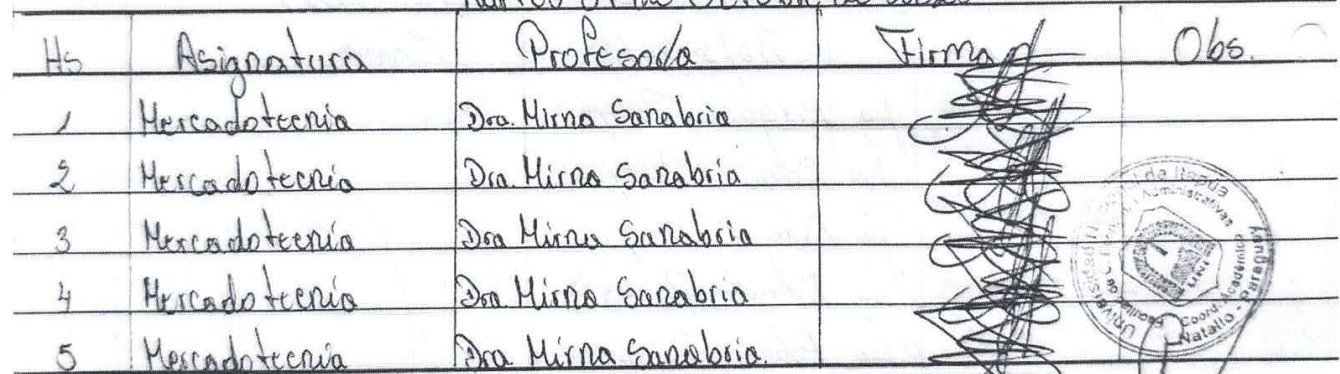 Martes 01 de Octubre de
Hs Asignatura Profesor/a Firma Obs.
1 Mercadotecnia Dra. Mirna Sanabria
2 Mercadotecnia Dra. Mirna Sanabria
3 Mercadotecnia Dra Mirna Sanabria
4 Mercadotecnia Dra Mirna Sanabria
5 Mercadotecnia Dra Mirna Sanabria.
Universidad Nacional de Itapúa
Facultad de C. Administrativas
Coord. Académica
Natalio - Paraguay
UNI